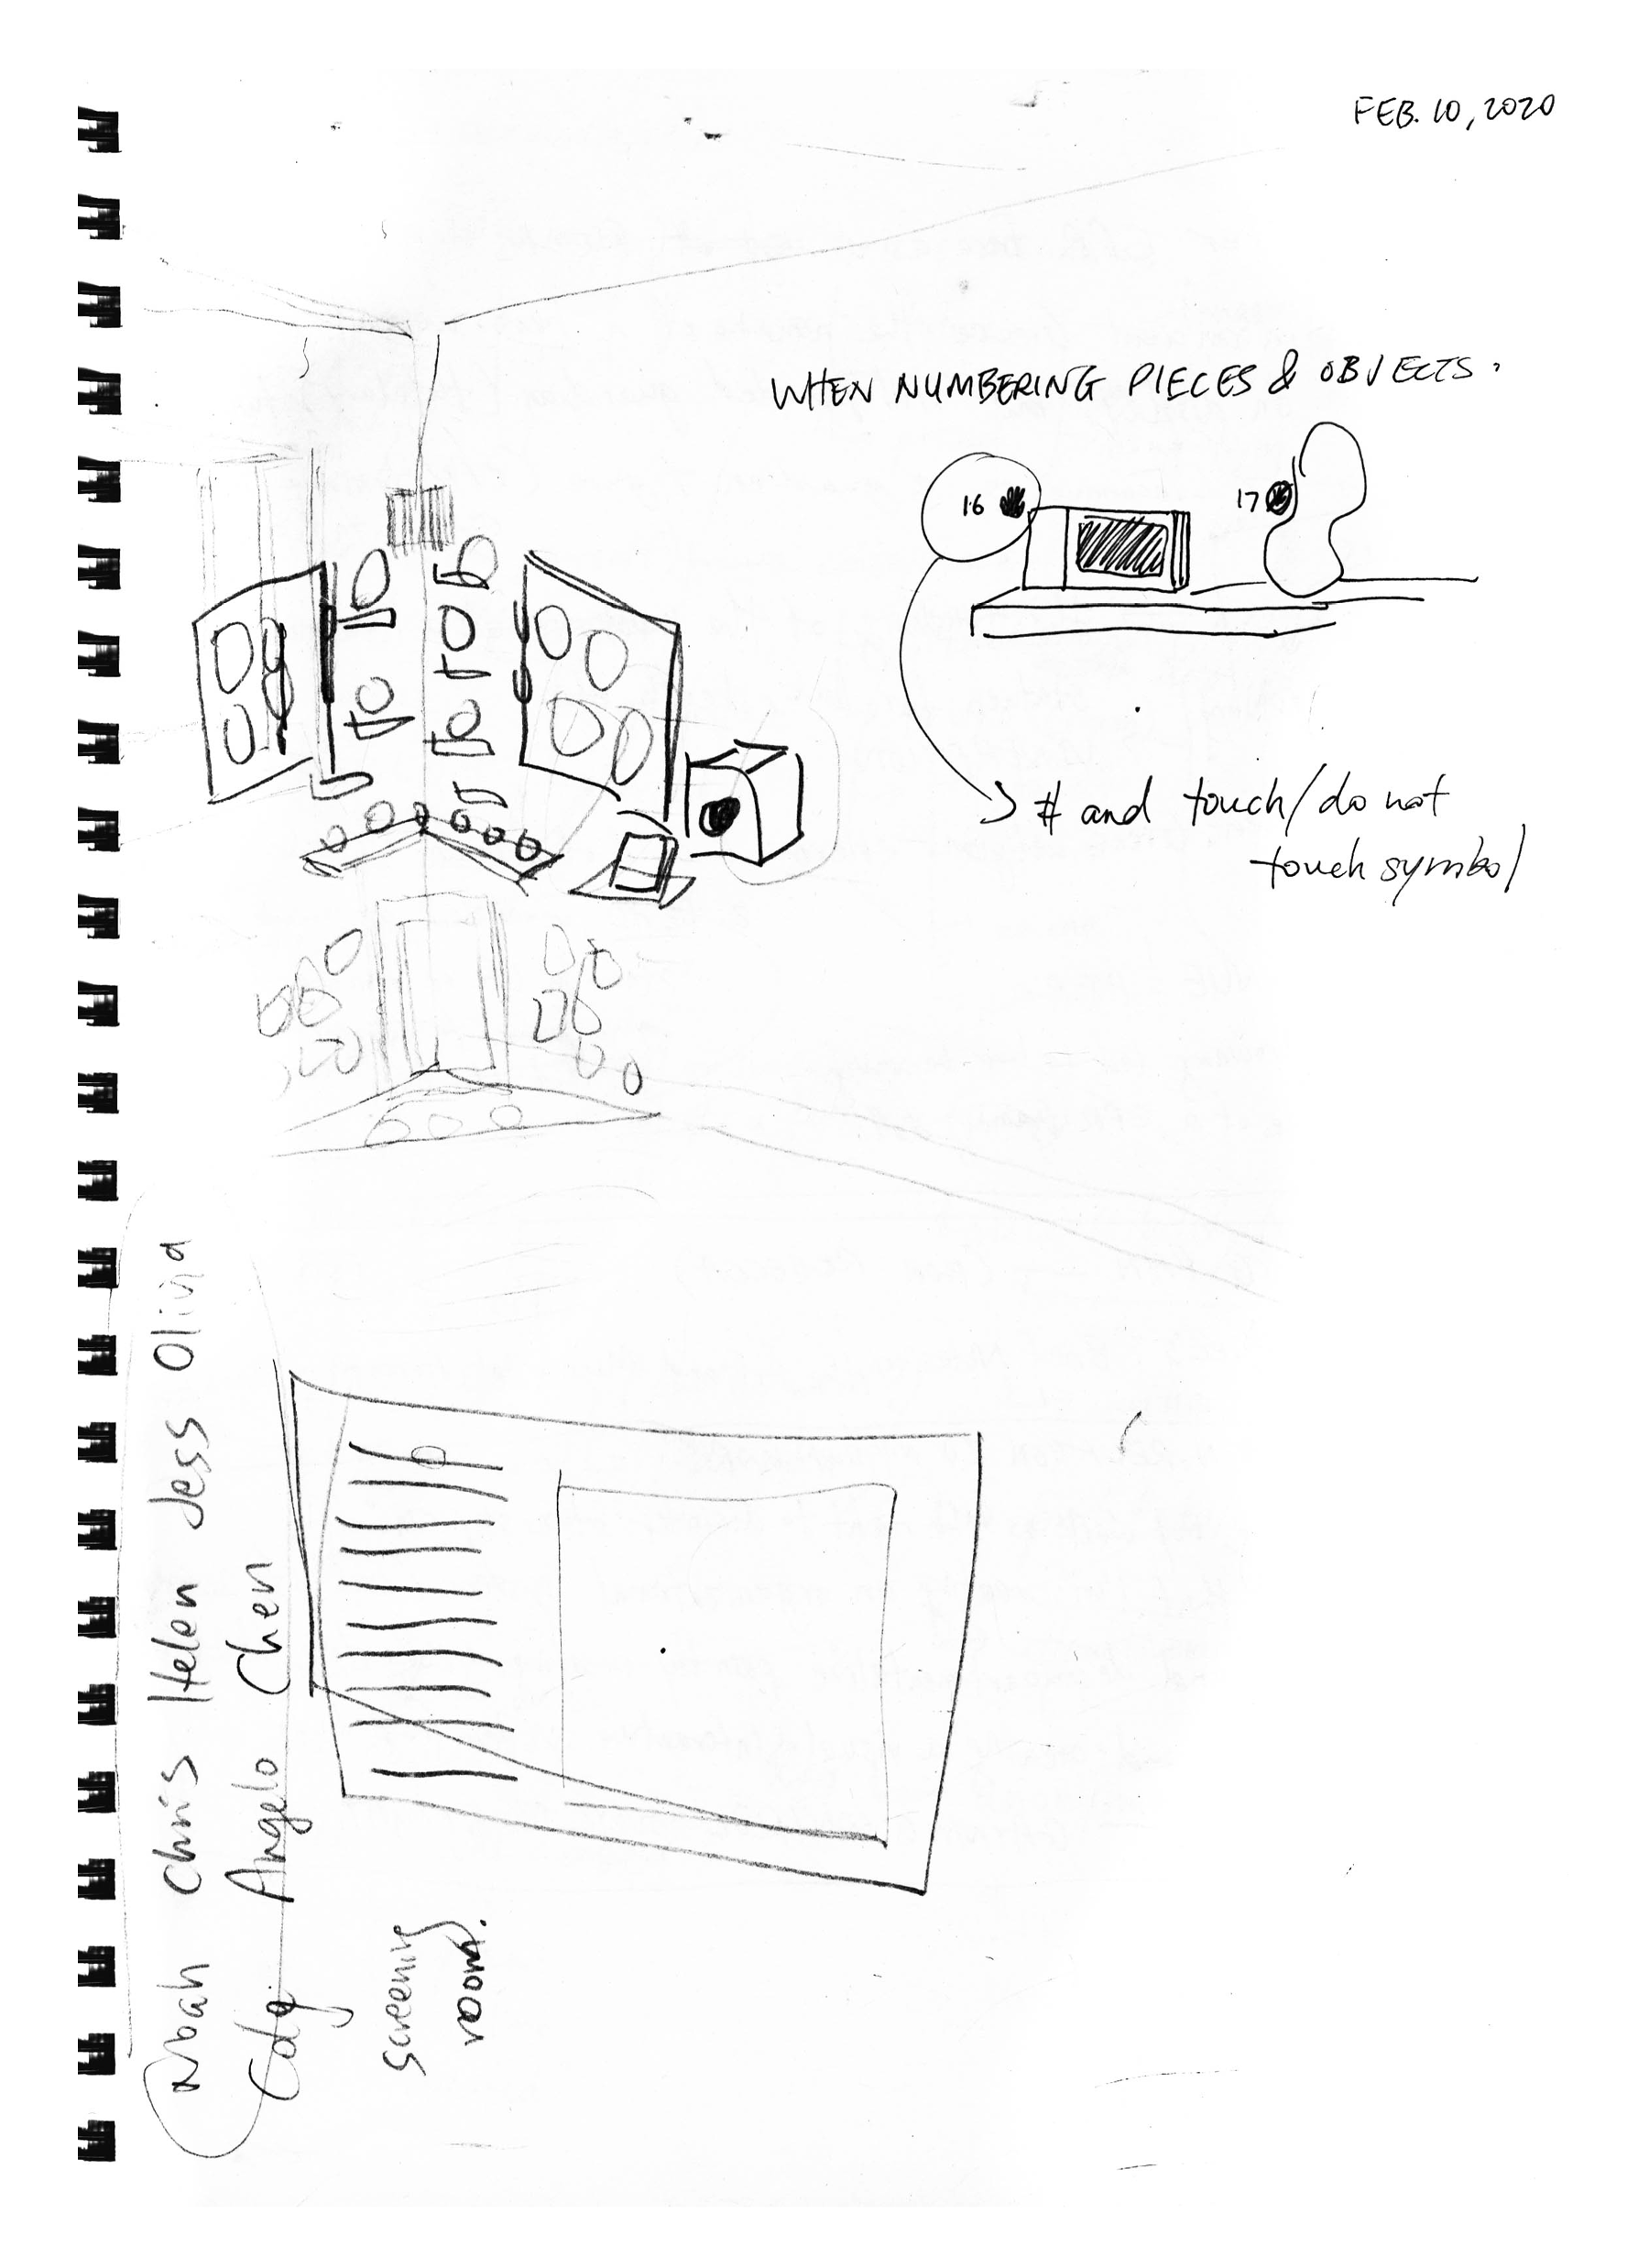 FEB. 10, 2020
WHEN NUMBERING PIECES & OBJECTS.
16
17
# and touch/do not
touch symbol
Noah Chris Helen Jess Olivia
Angelo Chen
screening
room.